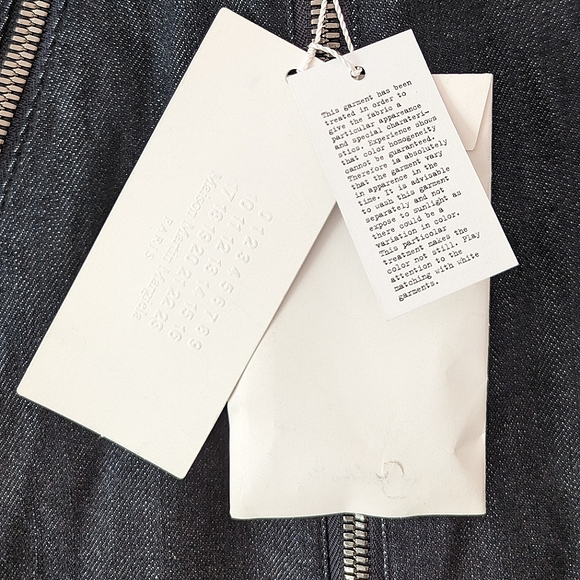 Maison Martin Margiela
PARIS
0 1 2 3 4 5 6 7 8 9
10 11 12 13 14 15 16
17 18 19 20 21 22 23
This garment has been
treated in order to
give the fabric a
particular appareance
and special charateri-
stics. Experience shows
that color homogeneity
cannot be guaranteed.
Therefore is absolutely
that the garment vary
in apparence in the
time. It is advisable
to wash this garment
separately and not
expose to sunlight as
there could be a
variation in color.
This particolar
treatment makes the
color not still. Play
attention to the
matching with white
garments.